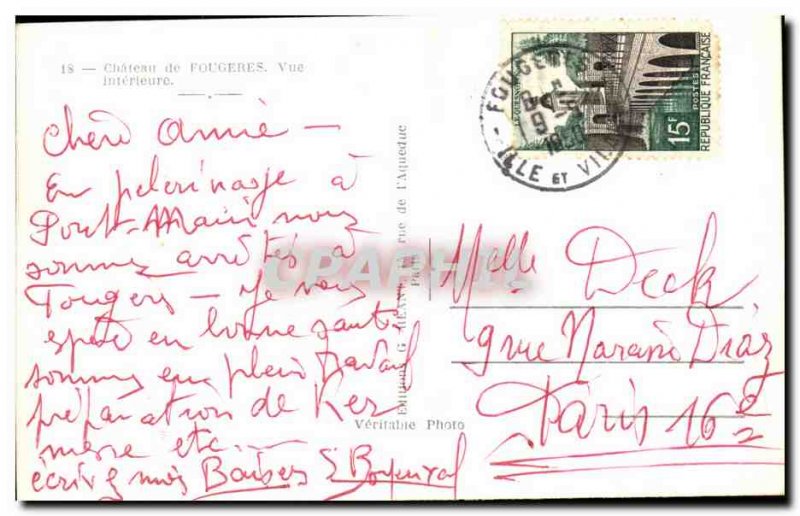 18 — Château de FOUGERES. Vue
intérieure.
Chère Amie —
En pelerinage à
Pont-Main nous
sommes arrêtés à
Fougers — je vous
espère en bonne santé
sommes en plein travail
préparation de Ker
messe etc —
écrivez moi Baisers
EDITIONS G. rue de l'Aqueduc
PARIS
Véritable Photo
CPARPHIL
FOUGERES
ILLE ET VIL
15F
POSTES
REPUBLIQUE FRANÇAISE
Melle Deck
9 rue Narcisse Diaz
Paris 16e